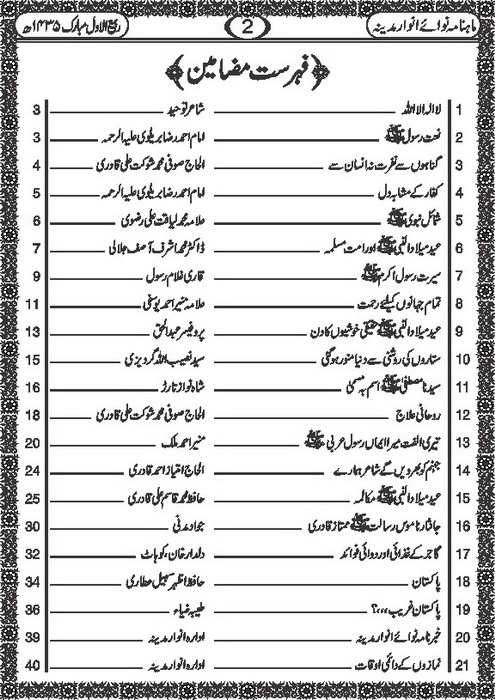 ماہنامہ نوائے انوار مدینہ 2 ربیع الاول مبارک ۱۴۳۵ھ
﴿فہرست مضامین﴾
1 لا الہ الا اللہ شاعر توحید 3
2 نعت رسول ﷺ امام احمد رضا بریلوی علیہ الرحمہ 3
3 گناہوں سے نفرت نہ انسان سے الحاج صوفی محمد شوکت علی قادری 4
4 کفار کے مشابہ دل امام احمد رضا بریلوی علیہ الرحمہ 5
5 شمائل نبوی ﷺ علامہ محمد لیاقت علی رضوی 6
6 عید میلاد النبی ﷺ اور امت مسلمہ ڈاکٹر محمد اشرف آصف جلالی 7
7 سیرت رسول اکرم ﷺ قاری غلام رسول 9
8 تمام جہانوں کیلئے رحمت علامہ منیر احمد یوسفی 11
9 عید میلاد النبی ﷺ حقیقی خوشیوں کا دن پروفیسر عبدالحق 13
10 ستاروں کی روشنی سے دنیا منور ہوگئی سید نصیب اللہ گردیزی 15
11 سیدنا مصطفیٰ ﷺ اسم بہ مسمی شاہ نواز تارڑ 16
12 روحانی علاج الحاج صوفی محمد شوکت علی قادری 18
13 تیری الفت میرا ایماں رسول عربی ﷺ منیر احمد ملک 20
14 جہنم کو بھر دیں گے شاعر ہمارے الحاج امتیاز احمد قادری 24
15 عید میلاد النبی ﷺ مکالمہ حافظ محمد قاسم علی قادری 25
16 جانثار ناموس رسالت ﷺ ممتاز قادری جواد مدنی 30
17 گاجر کے غذائی اور دوائی فوائد دلدار خان، کوہاٹ 32
18 پاکستان حافظ اظہر سہیل عطاری 34
19 پاکستان غریب،،،؟ طیبہ ضیاء 36
20 خبرنامہ نوائے انوار مدینہ ادارہ انوار مدینہ 39
21 نمازوں کے دائمی اوقات ادارہ انوار مدینہ 40